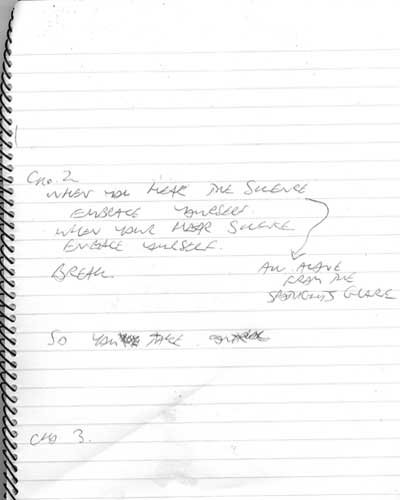 CHO. 2
WHEN YOU HEAR THE SILENCE
EMBRACE YOURSELF.
WHEN YOUR HEAR SILENCE
EMBRACE YOURSELF.
BREAK
ALL ALONE
FROM THE
SPOTLIGHTS GLARE
SO YOU TAKE
CHO 3.